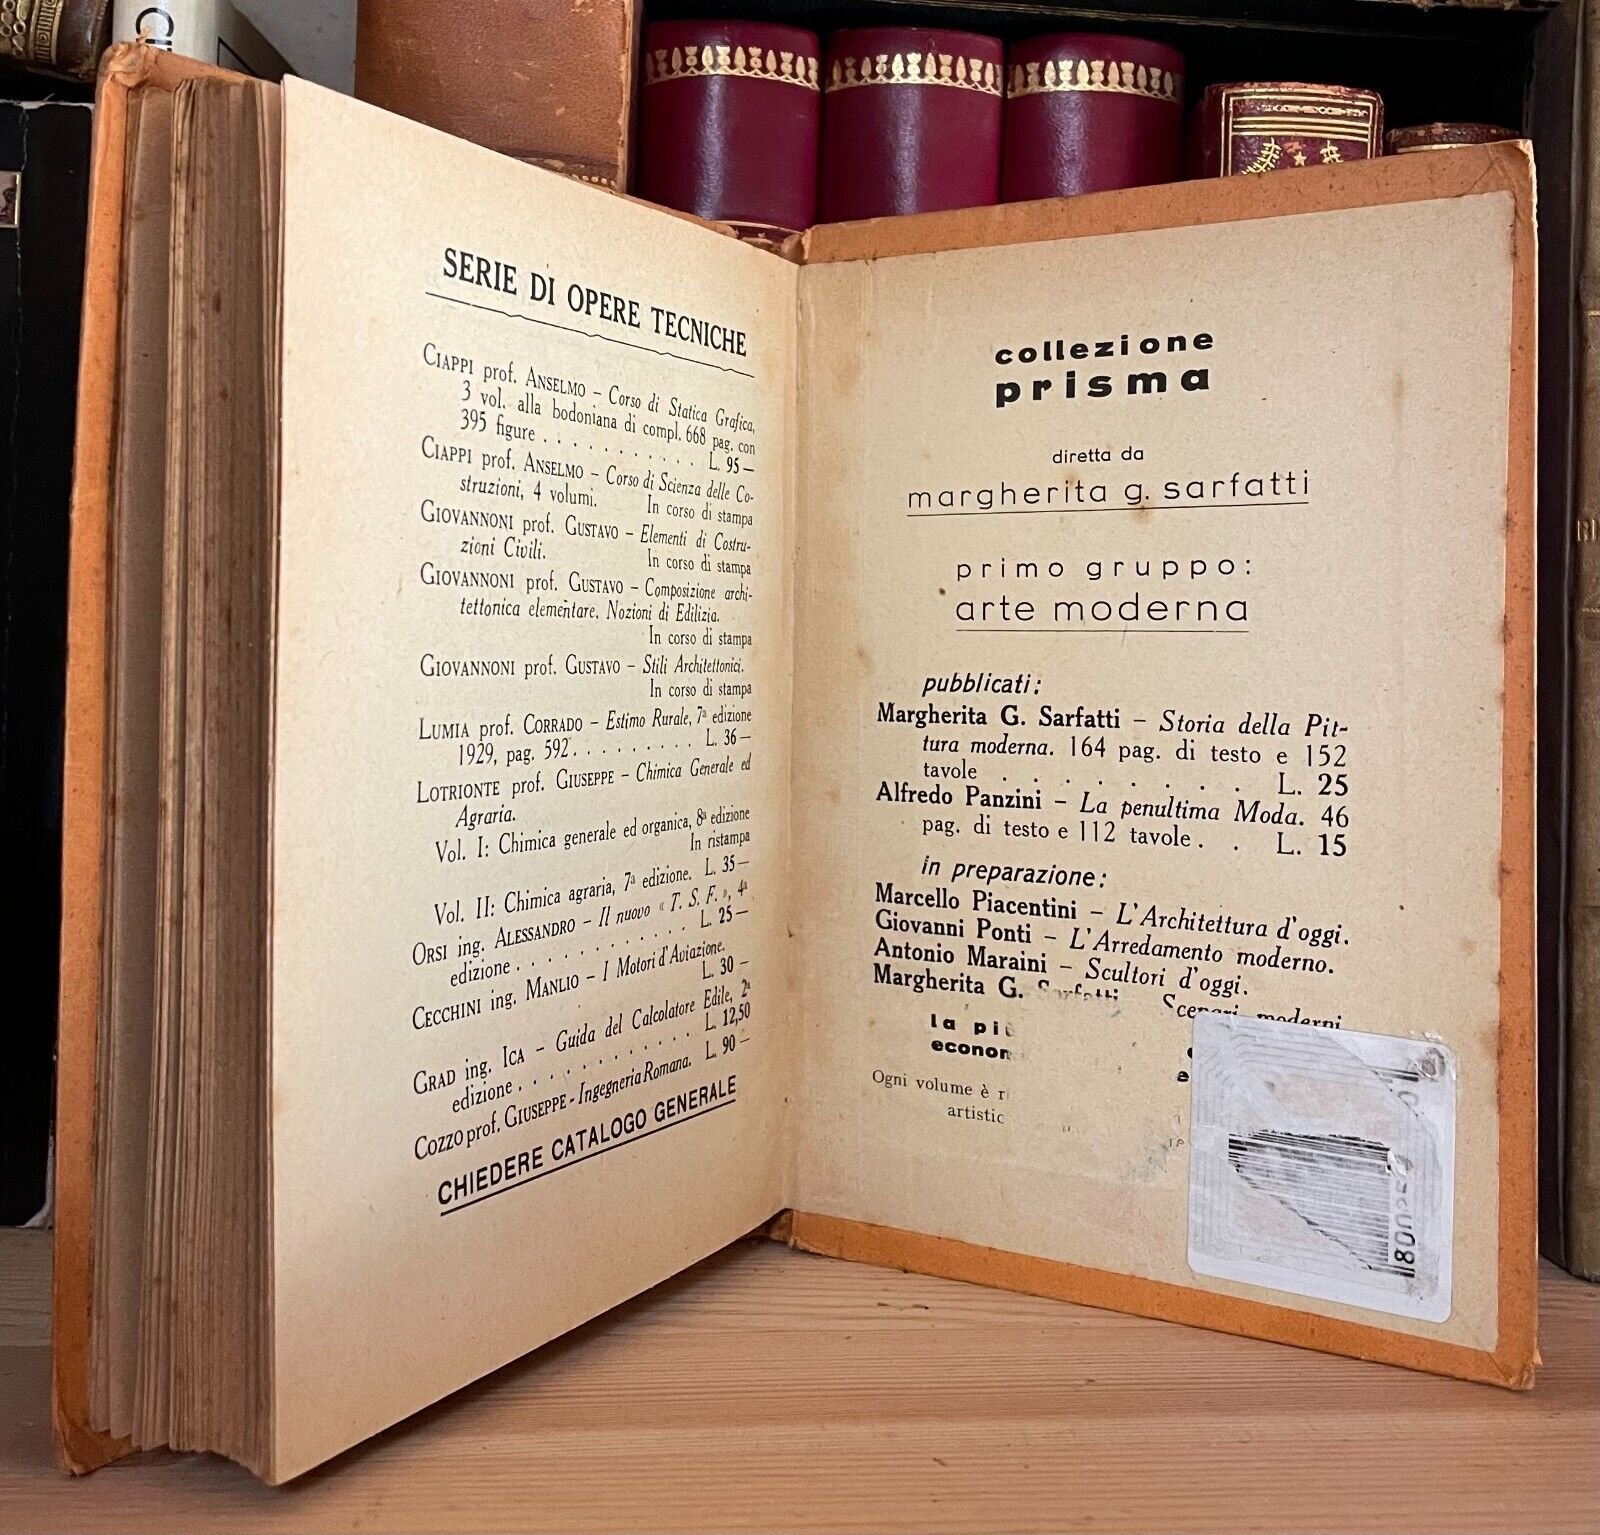 SERIE DI OPERE TECNICHE
CIAPPI prof. ANSELMO – Corso di Statica Grafica,
3 vol. alla bodoniana di compl. 668 pag. con
395 figure . . . . . . . . . . . L. 95 —
CIAPPI prof. ANSELMO – Corso di Scienza delle Co-
struzioni, 4 volumi. In corso di stampa
GIOVANNONI prof. GUSTAVO – Elementi di Costru-
zioni Civili. In corso di stampa
GIOVANNONI prof. GUSTAVO – Composizione archi-
tettonica elementare. Nozioni di Edilizia.
In corso di stampa
GIOVANNONI prof. GUSTAVO – Stili Architettonici.
In corso di stampa
LUMIA prof. CORRADO – Estimo Rurale, 7ª edizione
1929, pag. 592 . . . . . . . . . L. 36 —
LOTRIONTE prof. GIUSEPPE – Chimica Generale ed
Agraria.
Vol. I: Chimica generale ed organica, 8ª edizione
In ristampa
Vol. II: Chimica agraria, 7ª edizione. L. 35 —
ORSI ing. ALESSANDRO – Il nuovo « T. S. F. », 4ª
edizione . . . . . . . . . . . . L. 25 —
CECCHINI ing. MANLIO – I Motori d'Aviazione.
L. 30 —
GRAD ing. ICA – Guida del Calcolatore Edile, 2ª
edizione . . . . . . . . . . . . L. 12,50
COZZO prof. GIUSEPPE - Ingegneria Romana. L. 90 —
CHIEDERE CATALOGO GENERALE
collezione
prisma
diretta da
margherita g. sarfatti
primo gruppo:
arte moderna
pubblicati:
Margherita G. Sarfatti – Storia della Pit-
tura moderna. 164 pag. di testo e 152
tavole . . . . . . . . L. 25
Alfredo Panzini – La penultima Moda. 46
pag. di testo e 112 tavole . . L. 15
in preparazione:
Marcello Piacentini – L'Architettura d'oggi.
Giovanni Ponti – L'Arredamento moderno.
Antonio Maraini – Scultori d'oggi.
Margherita G. Sarfatti Scenari moderni
la più
econom
Ogni volume è
artistic